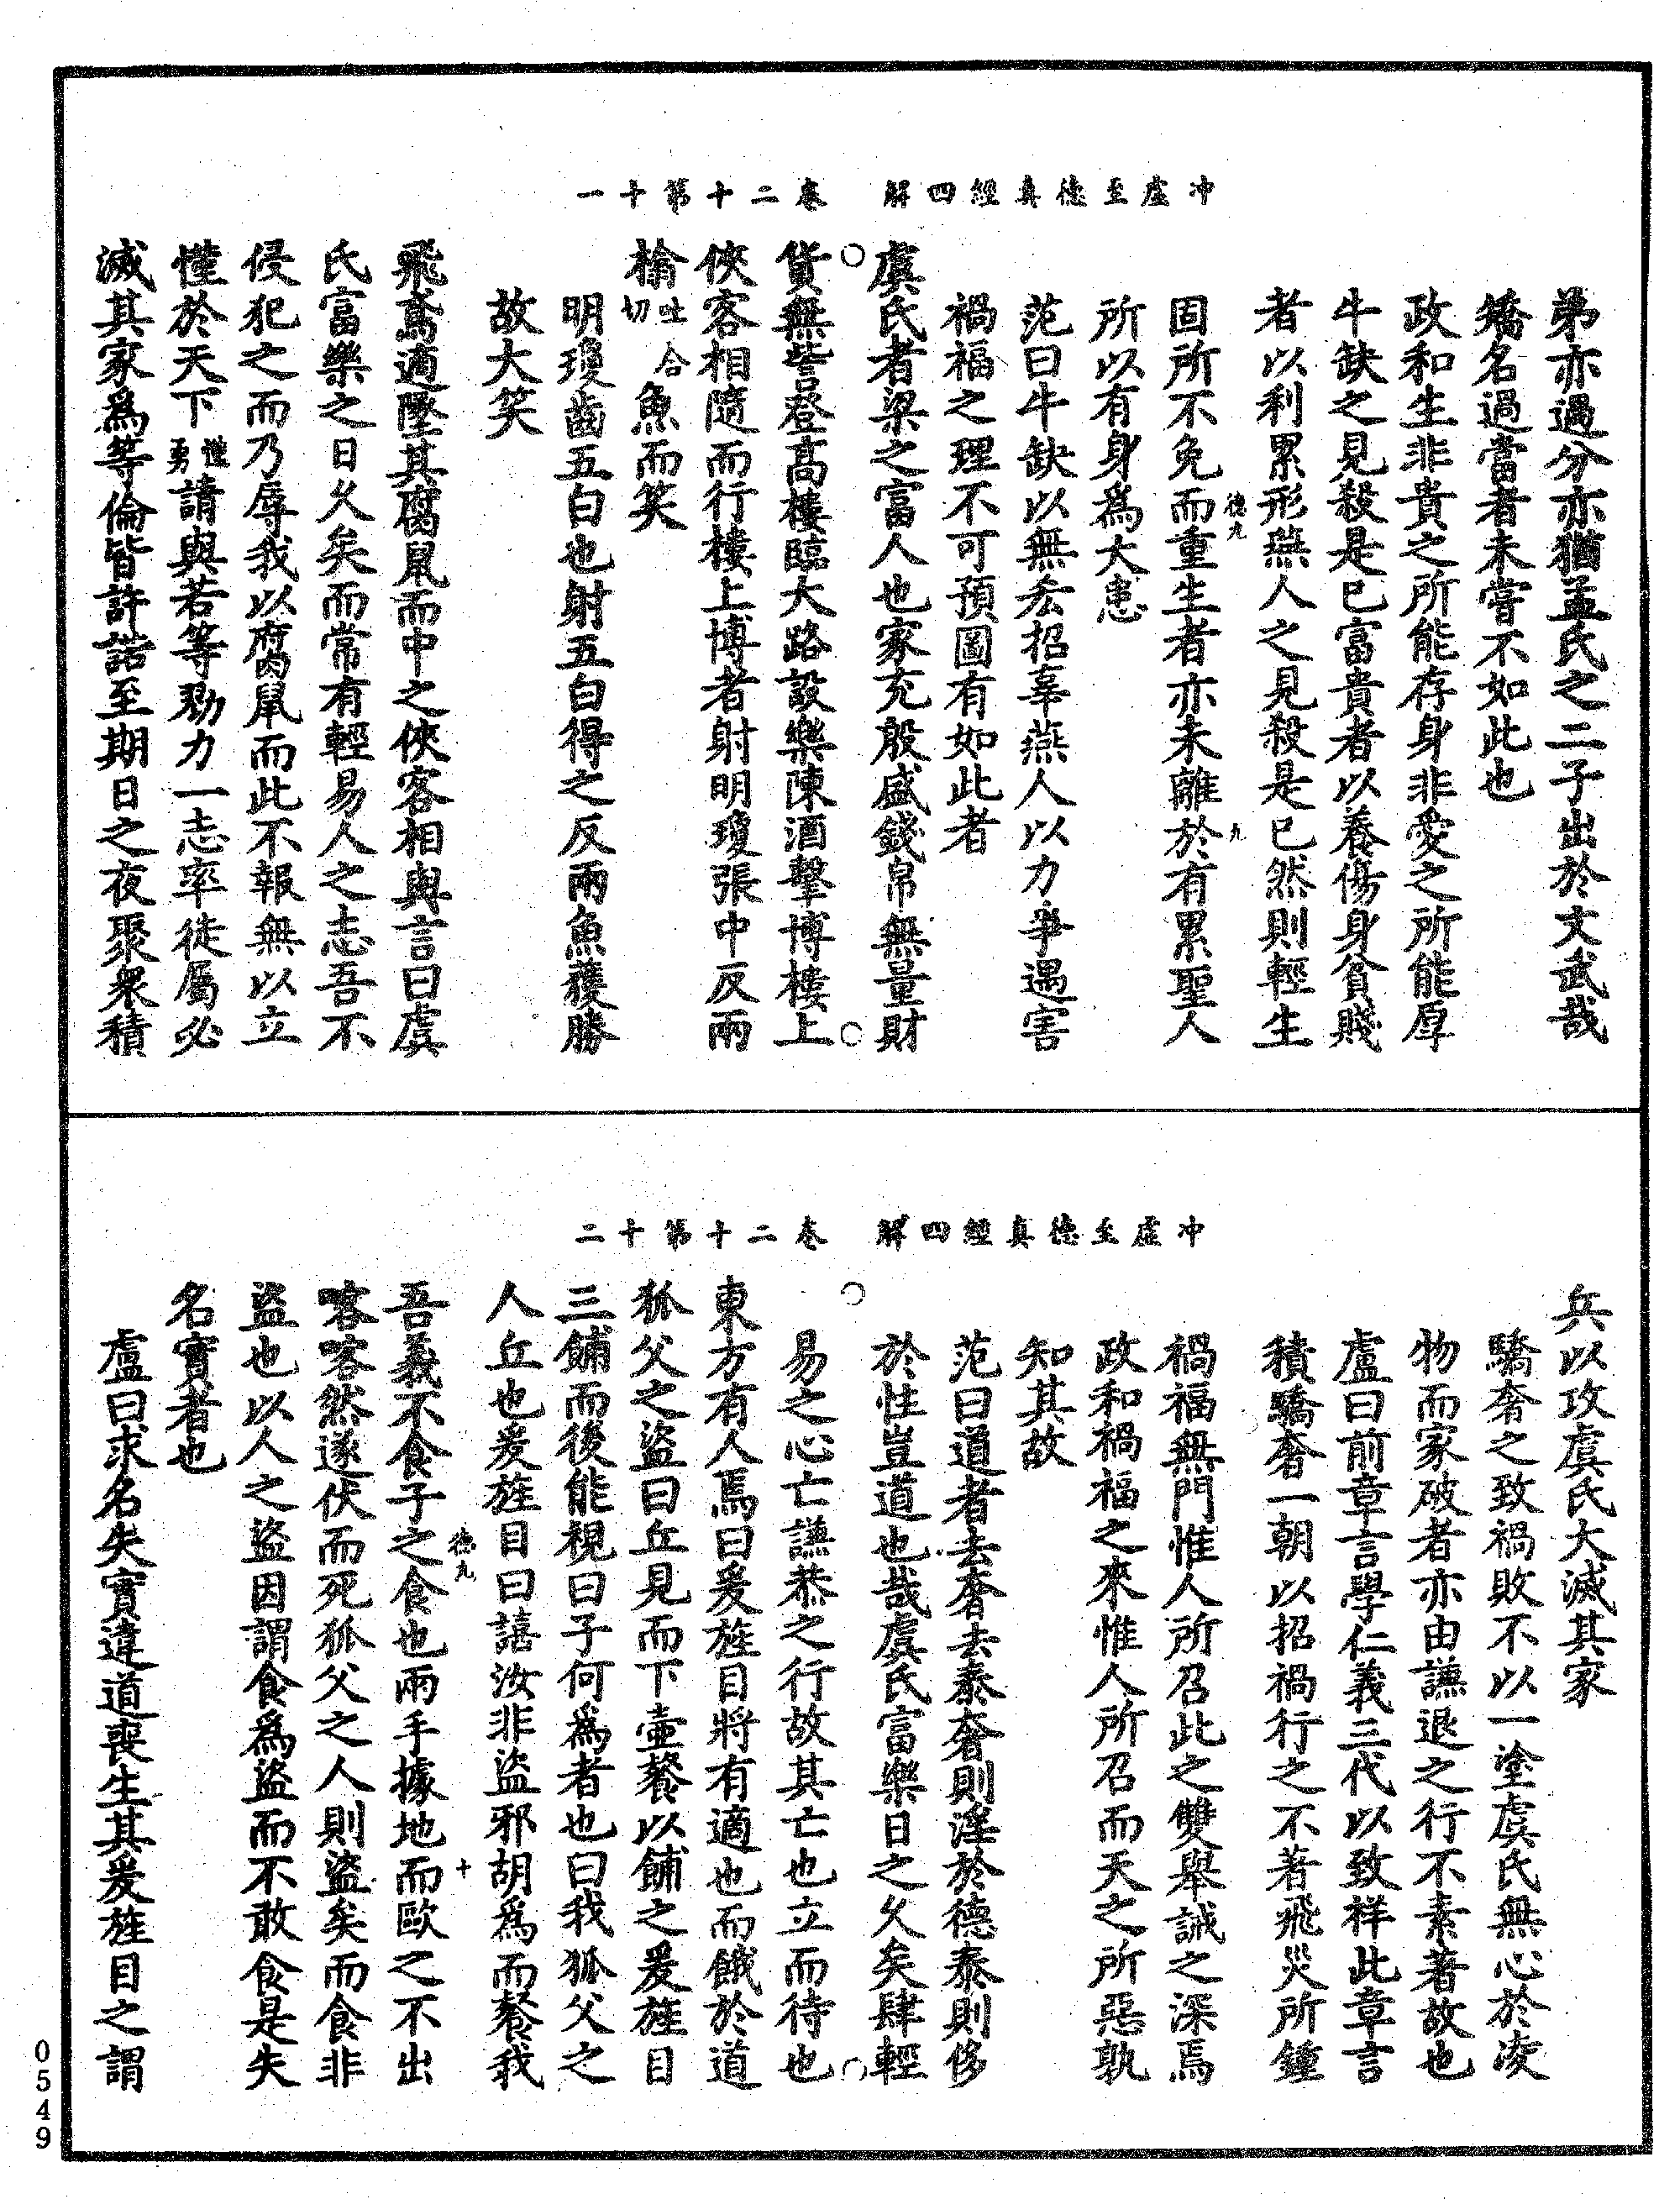 冲虛至德真經四解　卷二十第十一
弟亦過分亦猶孟氏之二子出於文武哉
矯名過當者未嘗不如此也
政和生非貴之所能存身非愛之所能厚
牛缺之見殺是已富貴者以養傷身貧賤
者以利累形燕人之見殺是已然則輕生
固所不免而重生者亦未離於有累聖人
德九
九
所以有身爲大患
范曰牛缺以無厺招辜燕人以力爭遇害
禍福之理不可預圖有如此者
虞氏者梁之富人也家充殷盛錢帛無量財
貨無訾登高樓臨大路設樂陳酒擊博樓上
俠客相隨而行樓上博者射明瓊張中反兩
㯓吐合切魚而笑
明瓊齒五白也射五白得之反兩魚獲勝
故大笑
飛鳶適墜其腐鼠而中之俠客相與言曰虞
氏富樂之日久矣而常有輕易人之志吾不
侵犯之而乃辱我以腐鼠而此不報無以立
慬於天下慬勇請與若等勠力一志率徒屬必
滅其家爲等倫皆許諾至期日之夜聚衆積
冲虛至德真經四解　卷二十第十二
兵以攻虞氏大滅其家
驕奢之致禍敗不以一塗虞氏無心於凌
物而家破者亦由謙退之行不素著故也
盧曰前章言學仁義三代以致祥此章言
積驕奢一朝以招禍行之不著飛災所鍾
禍福無門惟人所召此之雙舉誡之深焉
政和禍福之來惟人所召而天之所惡孰
知其故
范曰道者去奢去泰奢則淫於德泰則侈
於性豈道也哉虞氏富樂日之久矣肆輕
易之心亡謙恭之行故其亡也立而待也
東方有人焉曰爰旌目將有適也而餓於道
狐父之盜曰丘見而下壷餐以餔之爰旌目
三餔而後能視曰子何爲者也曰我狐父之
人丘也爰旌目曰譆汝非盜邪胡爲而餐我
吾義不食子之食也兩手據地而歐之不出
德九
十
喀喀然遂伏而死狐父之人則盜矣而食非
盜也以人之盜因謂食爲盜而不敢食是失
名實者也
盧曰求名失實違道喪生其爰旌目之謂
0549